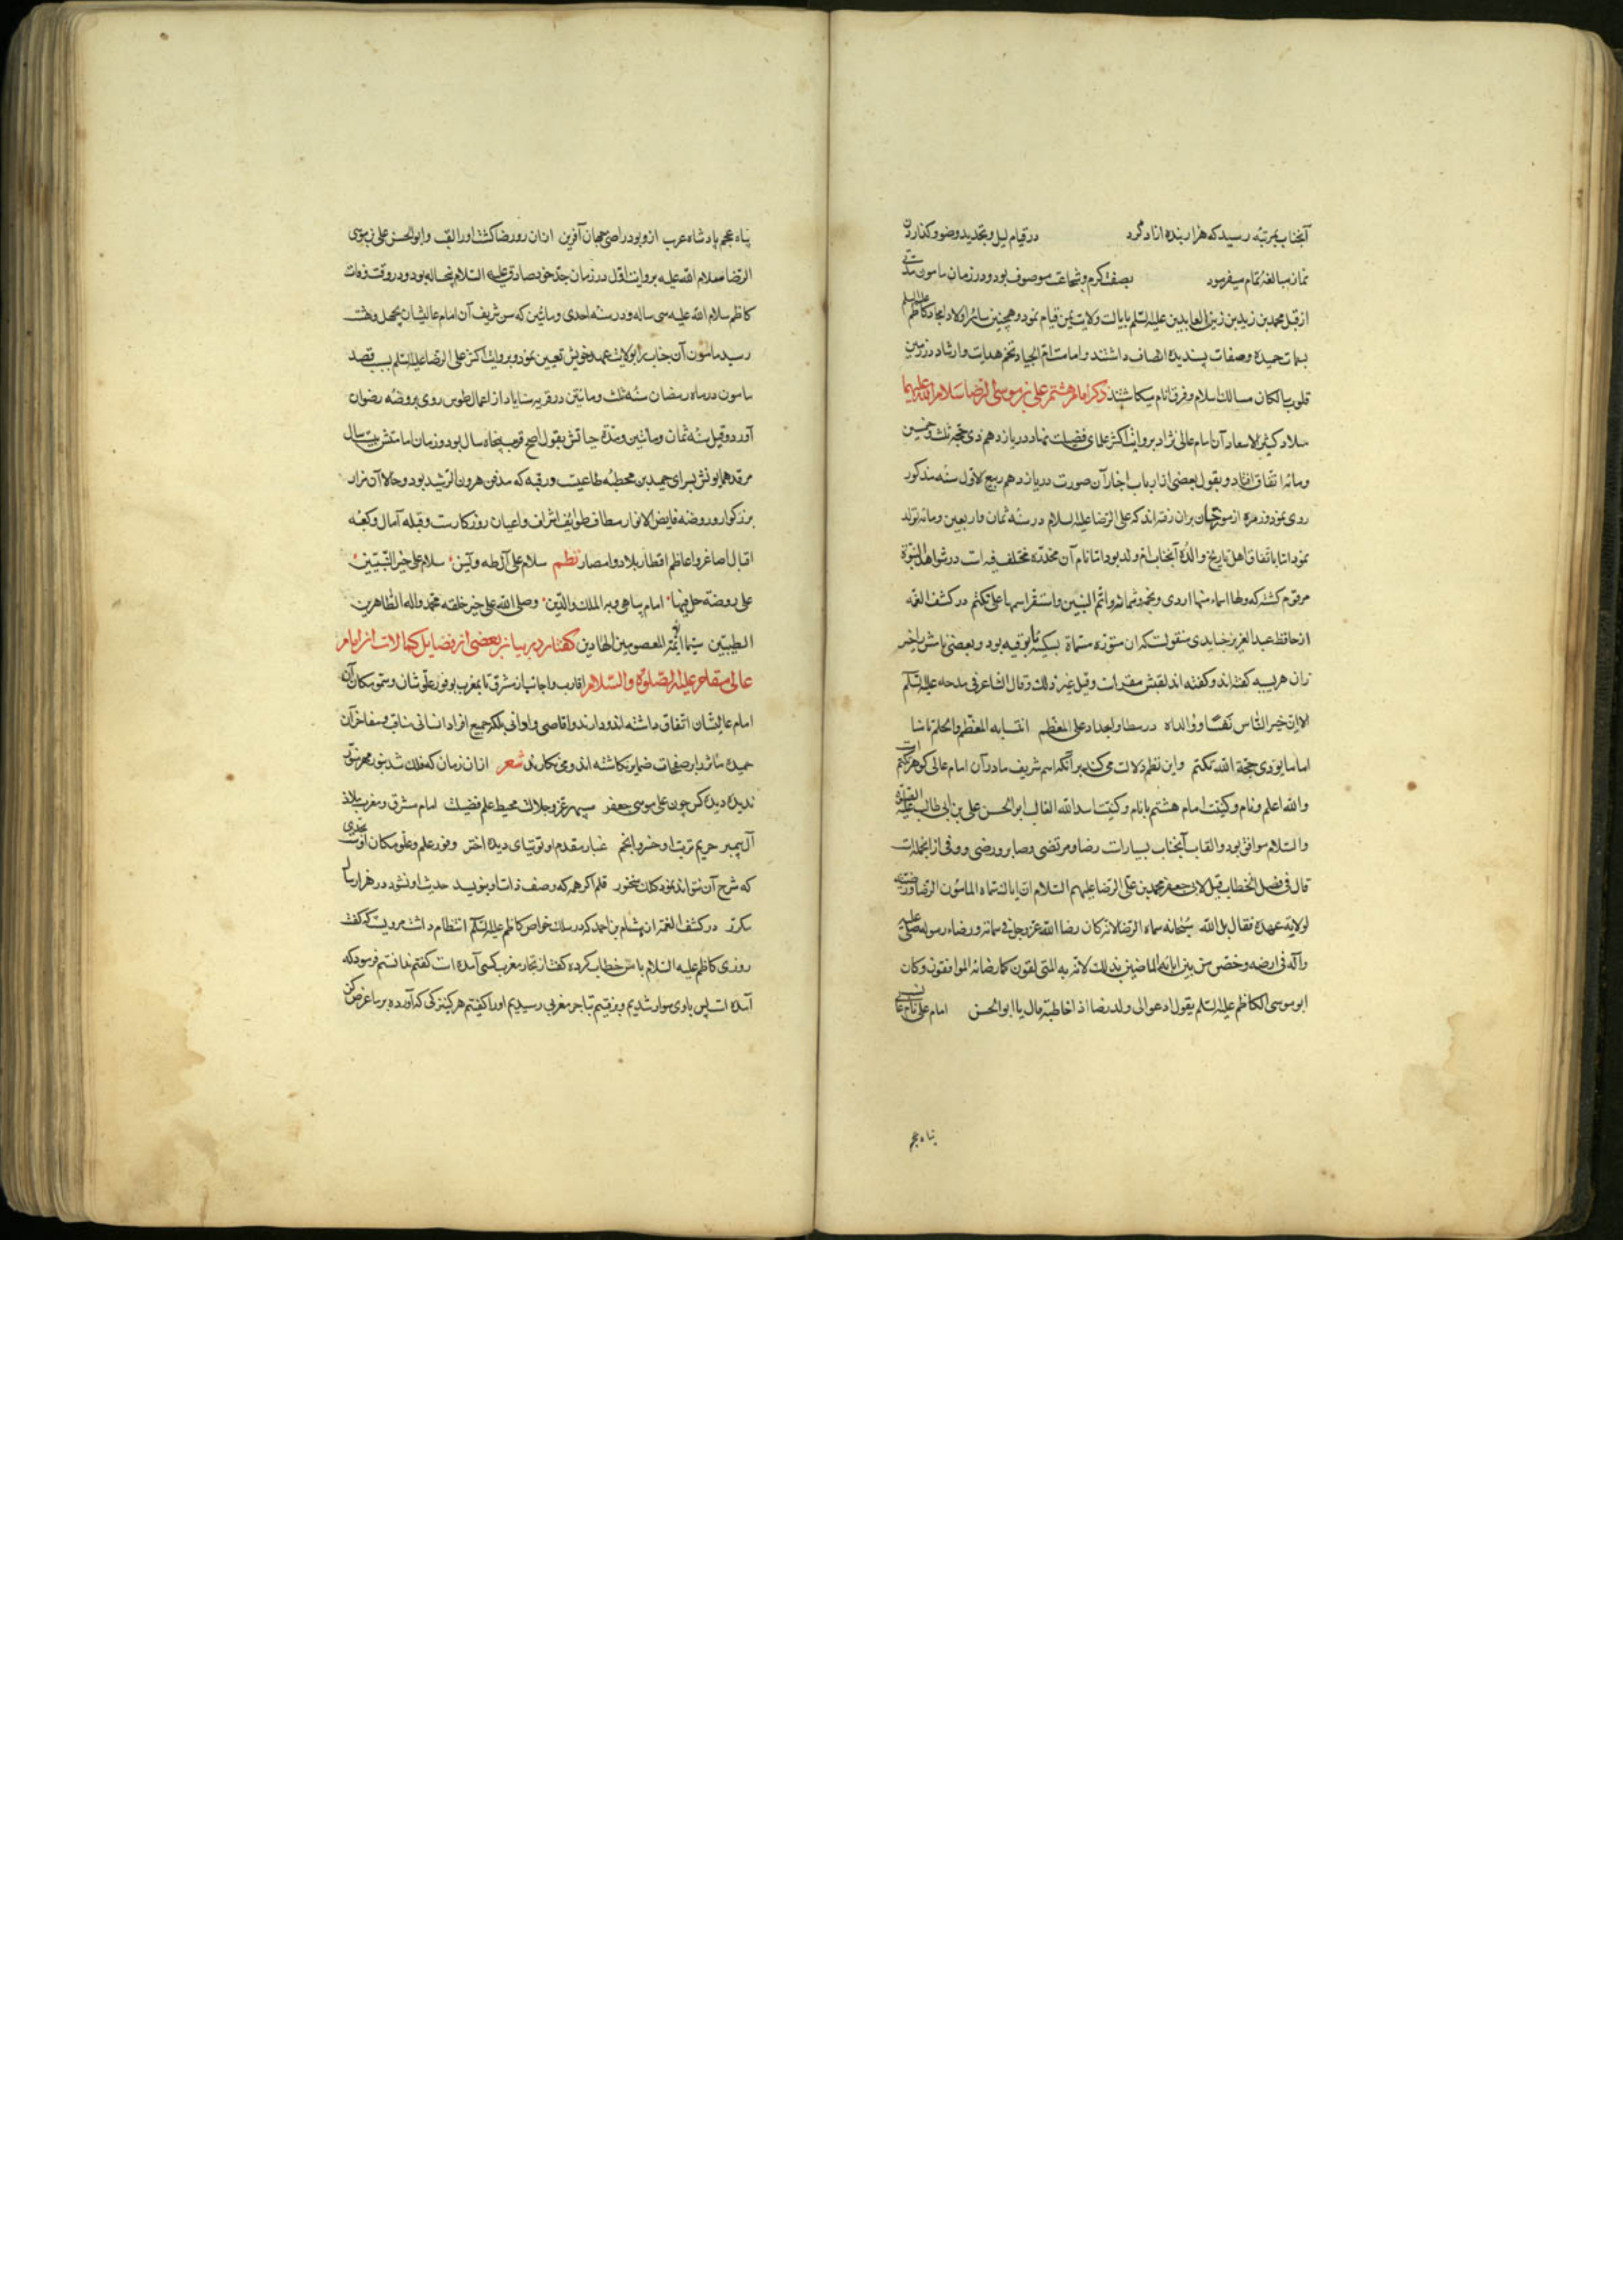 آنجناب بمرتبه رسید که هزار بنده ازاد کرد در قیام لیل و تجدید وضو و کذاردن
نماز مبالغه تمام میفرمود بصفت کرم و شجاعت موصوف بود و در زمان مامون مدتی
از قبل محمد بن زید بن زین العابدین علیه السلم بایالت ولایت یمن قیام نمود و همچنین سائر اولاد امجاد کاظم علیه السلم
بسمات حمیده و صفات پسندیده اتصاف داشتند و امامت تخم هدایت و ارشاد در زمین
قلوب سالکان مسالک اسلام و فرق انام میکاشتند ذکر امام هشتم علی بن موسی الرضا سلام الله علیهما
میلاد کثیر الاسعاد آن امام عالی نژاد بروایت اکثر علمای فضیلت نهاد در یازدهم ذی حجه ثلث و خمسین
ومائه اتفاق افتاد و بقول بعضی از ارباب اخبار آن صورت در یازدهم ربیع الاول سنه مذکور
روی نمود و زمره از مورخان بران رفته اند که علی الرضا علیه السلام در سنه ثمان و اربعین ومائه تولد
نمود اما باتفاق اهل تاریخ والده آنجناب ام ولد بود اما نام آن مخدره مختلف فیه است در شواهد النبوة
مرقوم کشته که ولها اسماء منها اروی و نجمه و سمانه و ام البنین واستقر اسمها علی تکتم در کشف الغمه
از حافظ عبد العزیز جنابدی منقولست که ان ستوره مسماة بسکینه نوبیه بود و بعضی نامش را خیز
ران مریسیه کفته اند و کفته اند لقبش شقرا است وقیل غیر ذلک وقال الشاعر فی مدحه علیه السلم
الا ان خیر الناس نفسا و والدا و رهطا و اجدادا علی المعظم اتتنا به للعلم والحلم ثامنا
اماما یودی حجة الله تکتم و این نظم دلالت می کند بر آنکه اسم شریف مادر آن امام عالی کوهر تکتم است
والله اعلم و نام و کنیت امام هشتم با نام و کنیت اسد الله الغالب ابو الحسن علی بن ابی طالب علیه الصلوة
والسلام موافق بود و القاب آنجناب بسیارست رضا و مرتضی و صابر و رضی و وفی از انجمله است
قال فی فصل الخطاب قیل لابی جعفر محمد بن علی الرضا علیهم السلام ان اباک سماه المامون الرضا و رضیه
لولایة عهده فقال بل الله سبحانه سماه الرضا لانه کان رضا الله عز و جل فی سمائه و رضاء رسوله صلی علیه
وآله فی ارضه وخص من بین ابائه الماضین بذلک لانه رضی به المخالفون کما رضا به الموافقون وکان
ابو موسی الکاظم علیه السلم یقول ادعوا لی ولدی رضا اذا خاطبه قال یا ابو الحسن امام علی نام عالی نسب
پناه عجم
پناه عجم پادشاه عرب ازو بود راضی جهان آفرین ازان رو رضا کشت اورا لقب و ابو الحسن علی بن موسی
الرضا سلام الله علیه بروایت اول در زمان جد خود صادق علیه السلام پنجساله بود و در وقت فوت
کاظم سلام الله علیه سی ساله و در سنه احدی و مائتین که سن شریف آن امام عالیشان بچهل و هشت
رسید مامون آن جناب را بولایت عهد خویش تعیین نمود و بروایت اکثر علی الرضا علیه السلم بسبب قصد
مامون در ماه رمضان سنه ثلث و مائتین در قریه سناباد از اعمال طوس روی بروضه رضوان
آورد و قیل سنه ثمان و مائتین و مدة حیاتش بقول اصح قریب پنجاه سال بود و زمان امامتش بیست سال
مرقد همایونش سرای حمید بن قحطبه طائیست در قبه که مدفن هرون الرشید بود و حالا آن مزار
بزرکوار و روضه فایض الانوار مطاف طوائف اشراف و اعیان روزکارست و قبله آمال و کعبه
اقبال اصاغر و اعاظم اقطار بلاد و امصار نظم سلام علی آل طه ویس سلام علی خیر النبیین
علی روضة حل فیها امام یباهی به الملک والدین وصلی الله علی خیر خلقه محمد واله الطاهرین
الطیبین سیما ائمة المعصومین الهادین کفتار در بیان بعضی از فضایل و کمالات آن امام
عالی مقام علیه الصلوة والسلام اقارب و اجانب از مشرق تا بمغرب بوفور علو شان و سمو مکان آن
امام عالیشان اتفاق داشته اند و دارند و اقاصی و ادانی بلکه جمیع افراد انسانی مناقب و مفاخر آن
حمیده مآثر را بر صفحات ضمایر نکاشته اند و می نکارند شعر ازان زمان که فلک شد بنور مهر منور
ندیده دیده کس چون علی موسی جعفر سپهر عز و جلالت محیط علم و فضیلت امام مشرق و مغرب ملاذ
آل پیمبر حریم تربت او خسرو انجم غبار مقدم او توتیای دیده اختر وفور علم و علو مکان اوست بحدی
که شرح آن نتواند نمود کلک سخنور قلم اکر همه که وصف ذات او بنویسد حدیث او نشود در هزار سال
مکرر در کشف الغمه از هشام بن احمد که در سلک خواص کاظم علیه السلم انتظام داشت مرویست که کفت
روزی کاظم علیه السلام با من خطاب کرده کفت از تجار مغرب کسی آمده است کفتم ندانستم فرمود که
آمده است پس باوی سوار شدیم و برفتیم تا بتاجر مغربی رسیدیم اورا کفتم هر کنیزکی که آورده بر ما عرض کن